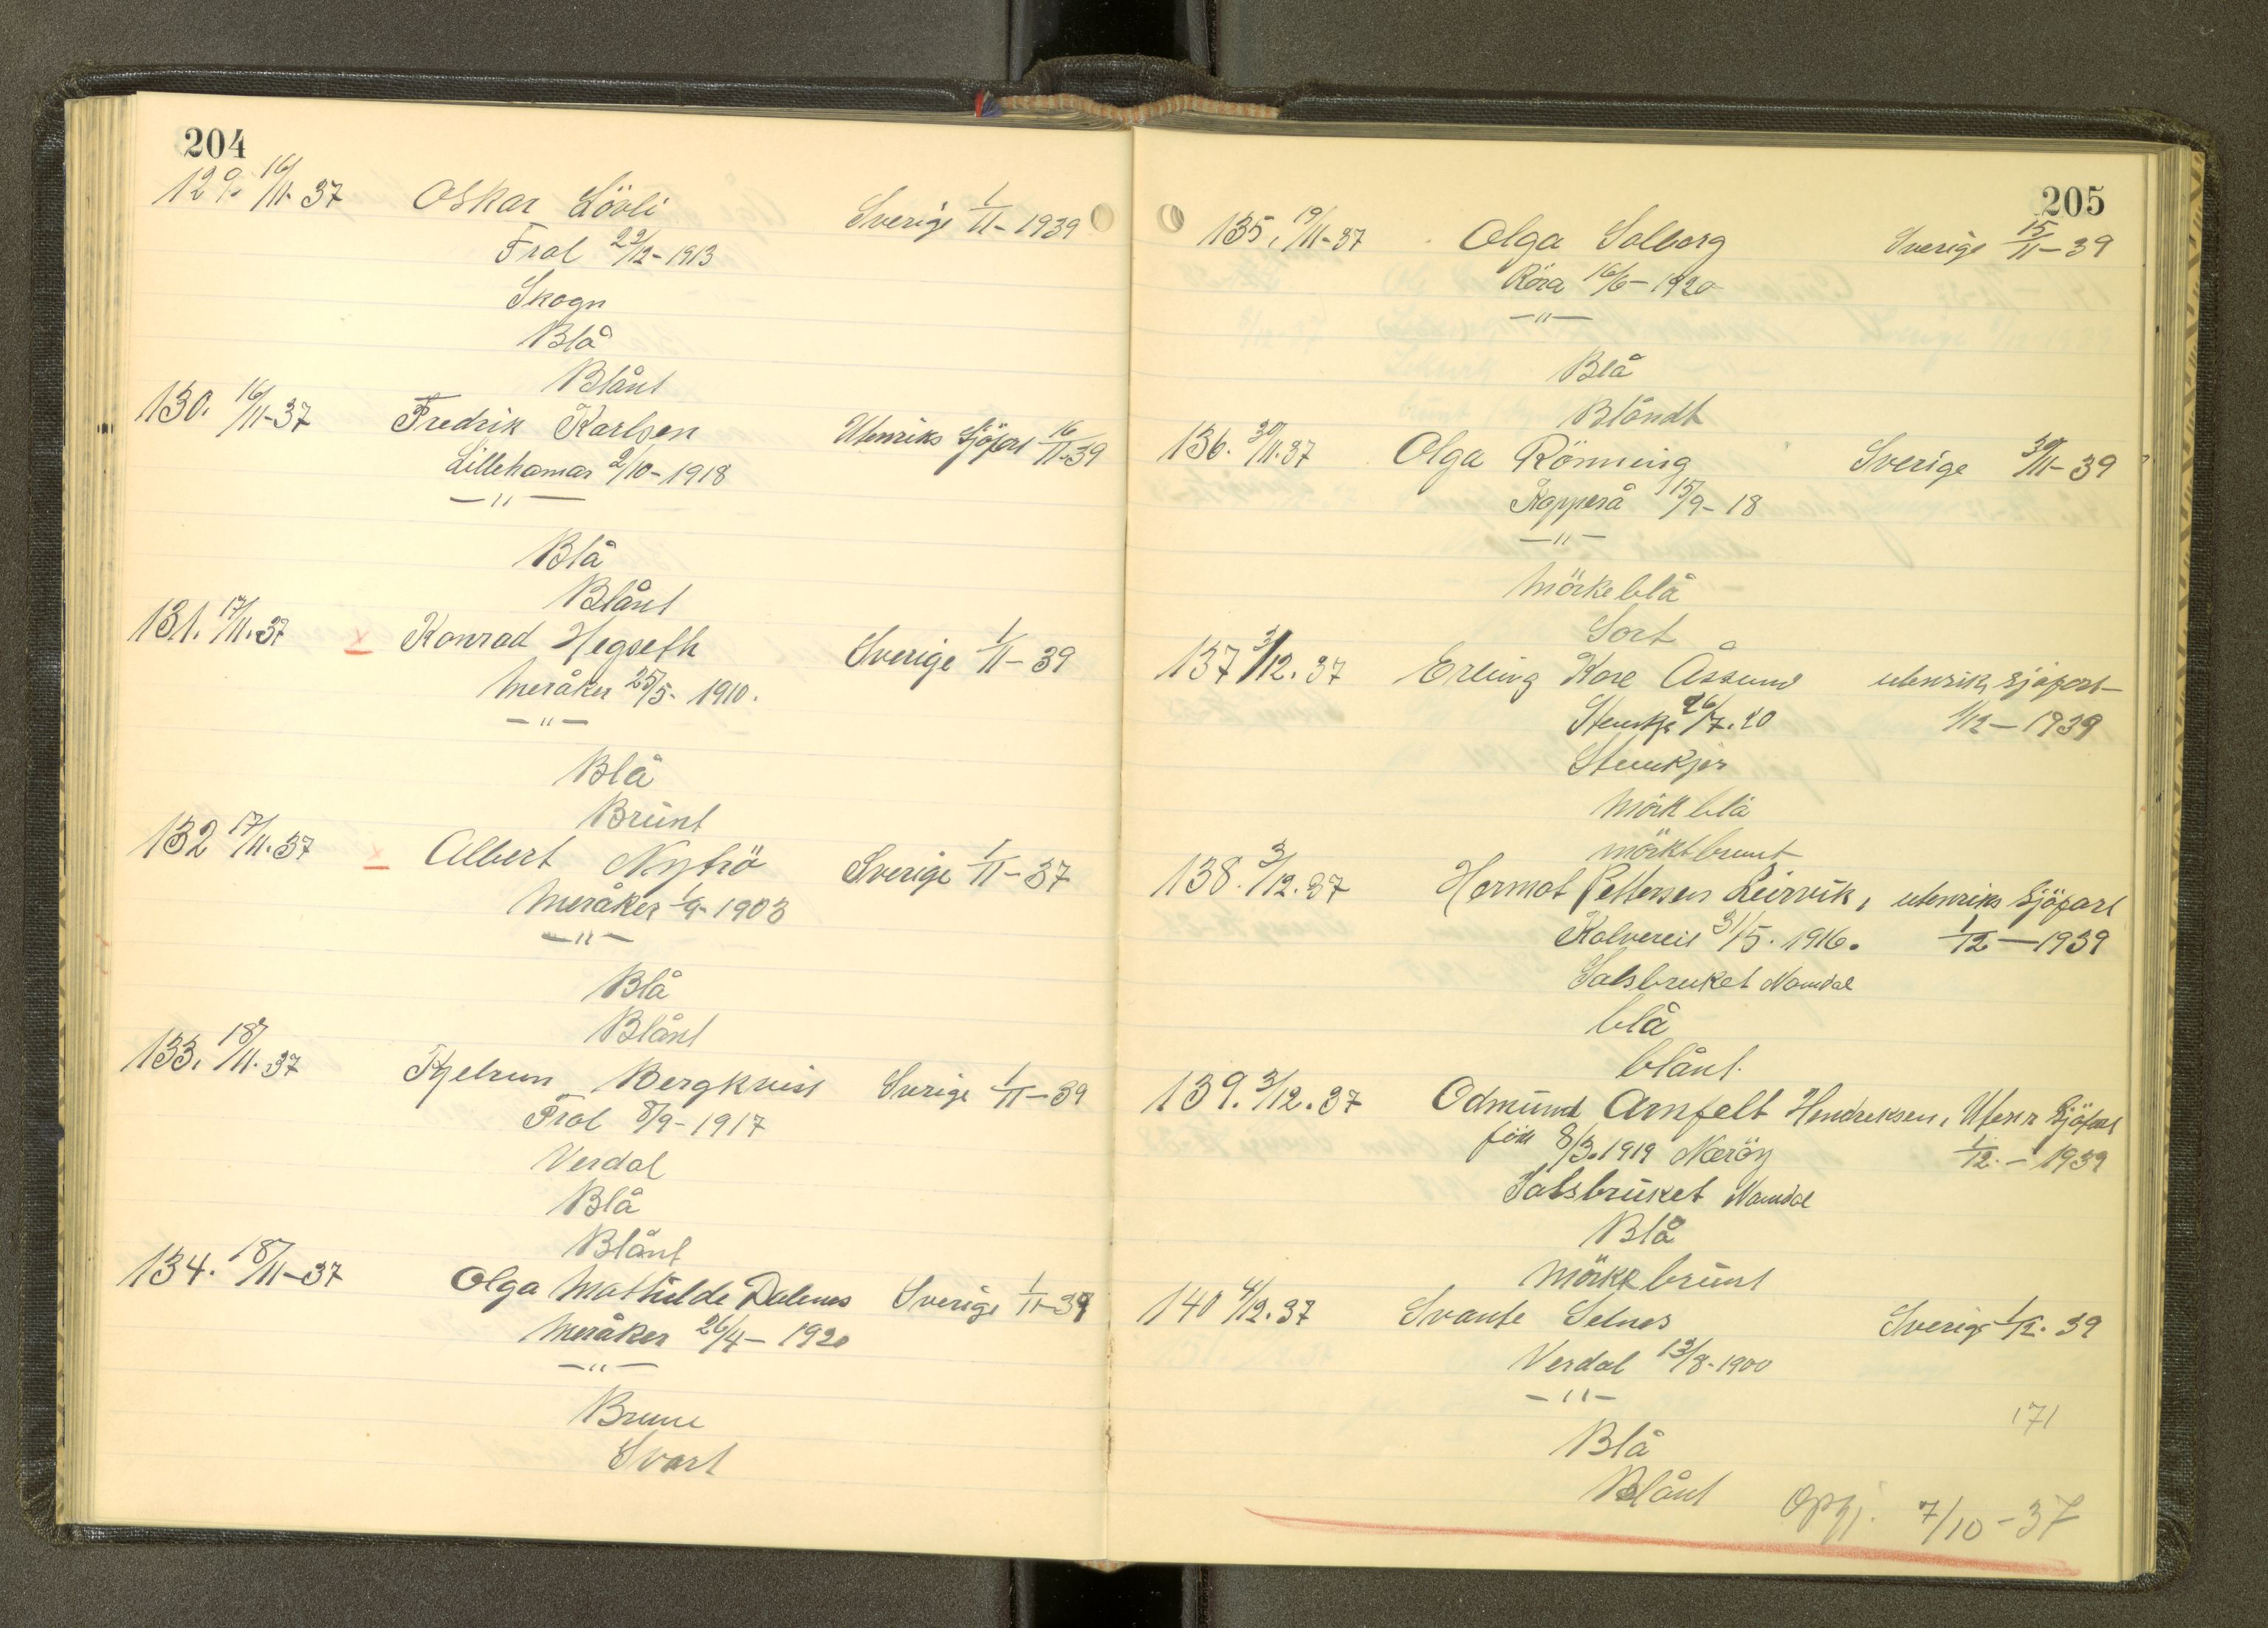 204
129. 16/11-37 Oskar Lövli Sverige 1/11-1939
Frol 22/12-1913
Skogn
Blå
Blånt
130. 16/11-37 Fredrik Karlsen Utenriks Sjöfart 16/11-39
Lillehamar 2/10-1918
—"—
Blå
Blånt
131. 17/11.37 x Konrad Hegseth Sverige 1/11-39
Meråker 25/5-1910.
—"—
Blå
Brunt
132 17/11.37 x Albert Nytrö Sverige 1/11-37
Meråker 1/9-1903
—"—
Blå
Blånt
133. 18/11.37 Kjelrun Bergkvist Sverige 1/11-39
Frol 8/9-1917
Verdal
Blå
Blånt
134. 18/11-37 Olga Mathilde Dalenes Sverige 1/11-39
Meråker 26/4-1920
—"—
Brune
Svart
205
135. 19/11-37 Olga Solborg Sverige 15/11-39
Röra 16/6-1920
—"—
Blå
Blåndt
136. 30/11.37 Olga Rönning Sverige 30/11-39
Kopperå 15/9-18
—"—
Mörkeblå
Sort
137 3/12.37 Erling Kore Åssund utenriks sjöfart
Stenkjer 26/7.20 1/12-1939
Stenkjer
Mörk blå
mörkt brunt
138. 3/12.37 Hormot Pettersen Leirvik, utenriks Sjöfart
Kolvereid 31/5.1916. 1/12-1939
Salsbruket Namdal
blå
blånt.
139. 3/12.37 Odmund Arnfelt Hendriksen, Utenr Sjöfart
föd 8/3.1919 Näröy 1/12.-1939
Salsbruket Namdal
Blå
Mörke brunt
140 4/12.37 Svante Selnes Sverige 1/12.39
Verdal 13/8-1900
—"—
171
Blå
Blånt
Oppj. 7/10-37